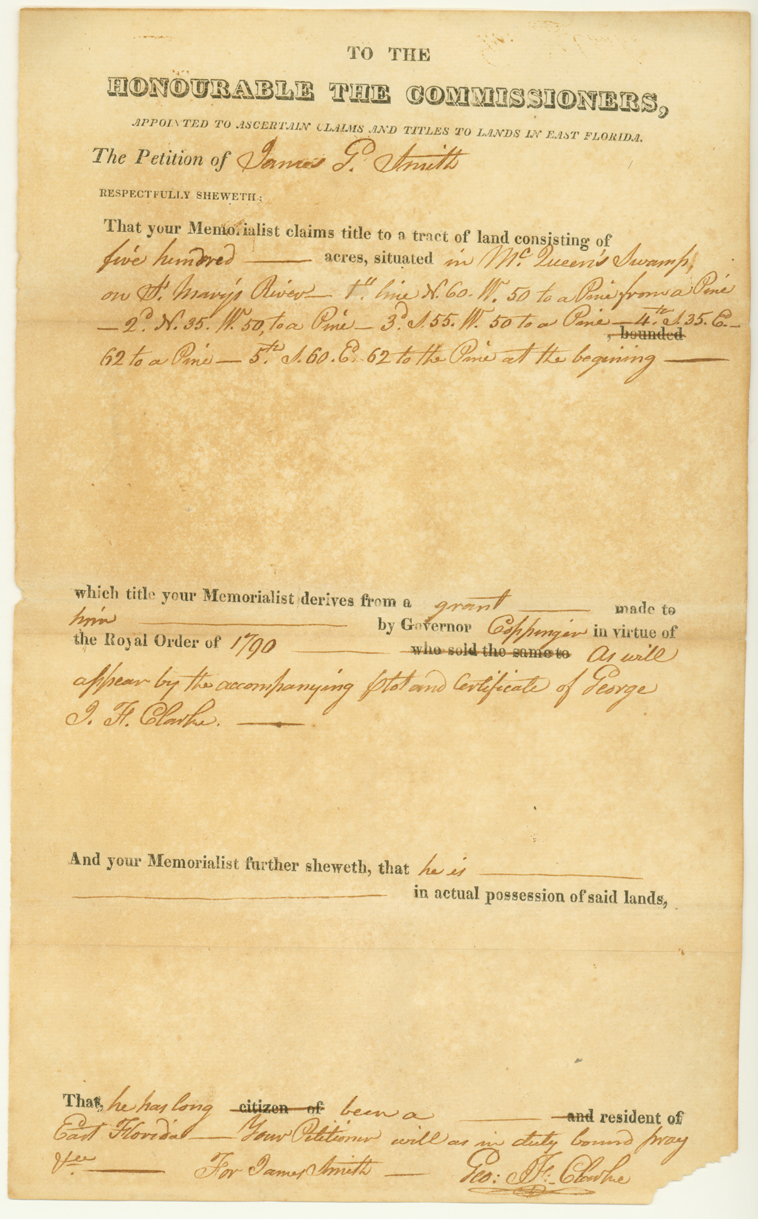 TO THE
HONOURABLE THE COMMISSIONERS,
APPOINTED TO ASCERTAIN CLAIMS AND TITLES TO LANDS IN EAST FLORIDA.
The Petition of James G. Smith
RESPECTFULLY SHEWETH;
That your Memorialist claims title to a tract of land consisting of
five hundred —— acres, situated in Mc Queen's Swamp,
on St. Mary's River — 1st. line N. 60. W. 50 to a Pine from a Pine
— 2d. N. 35. W. 50, to a Pine — 3d. S 55. W. 50 to a Pine — 4th. S. 35. E —
, bounded
62 to a Pine — 5th. S. 60. E. 62 to the Pine at the begining ——
which title your Memorialist derives from a grant —— made to
him —— by Governor Coppinger in virtue of
the Royal Order of 1790 —— who sold the same to As will
appear by the accompanying plot and Certificate of George
J. F. Clarke. ——
And your Memorialist further sheweth, that he is ——
—— in actual possession of said lands,
That, he has long citizen of been a —— and resident of
East Florida — Your Petitioner will as in duty bound pray
&ce —— For James Smith — Geo: J. F. Clarke